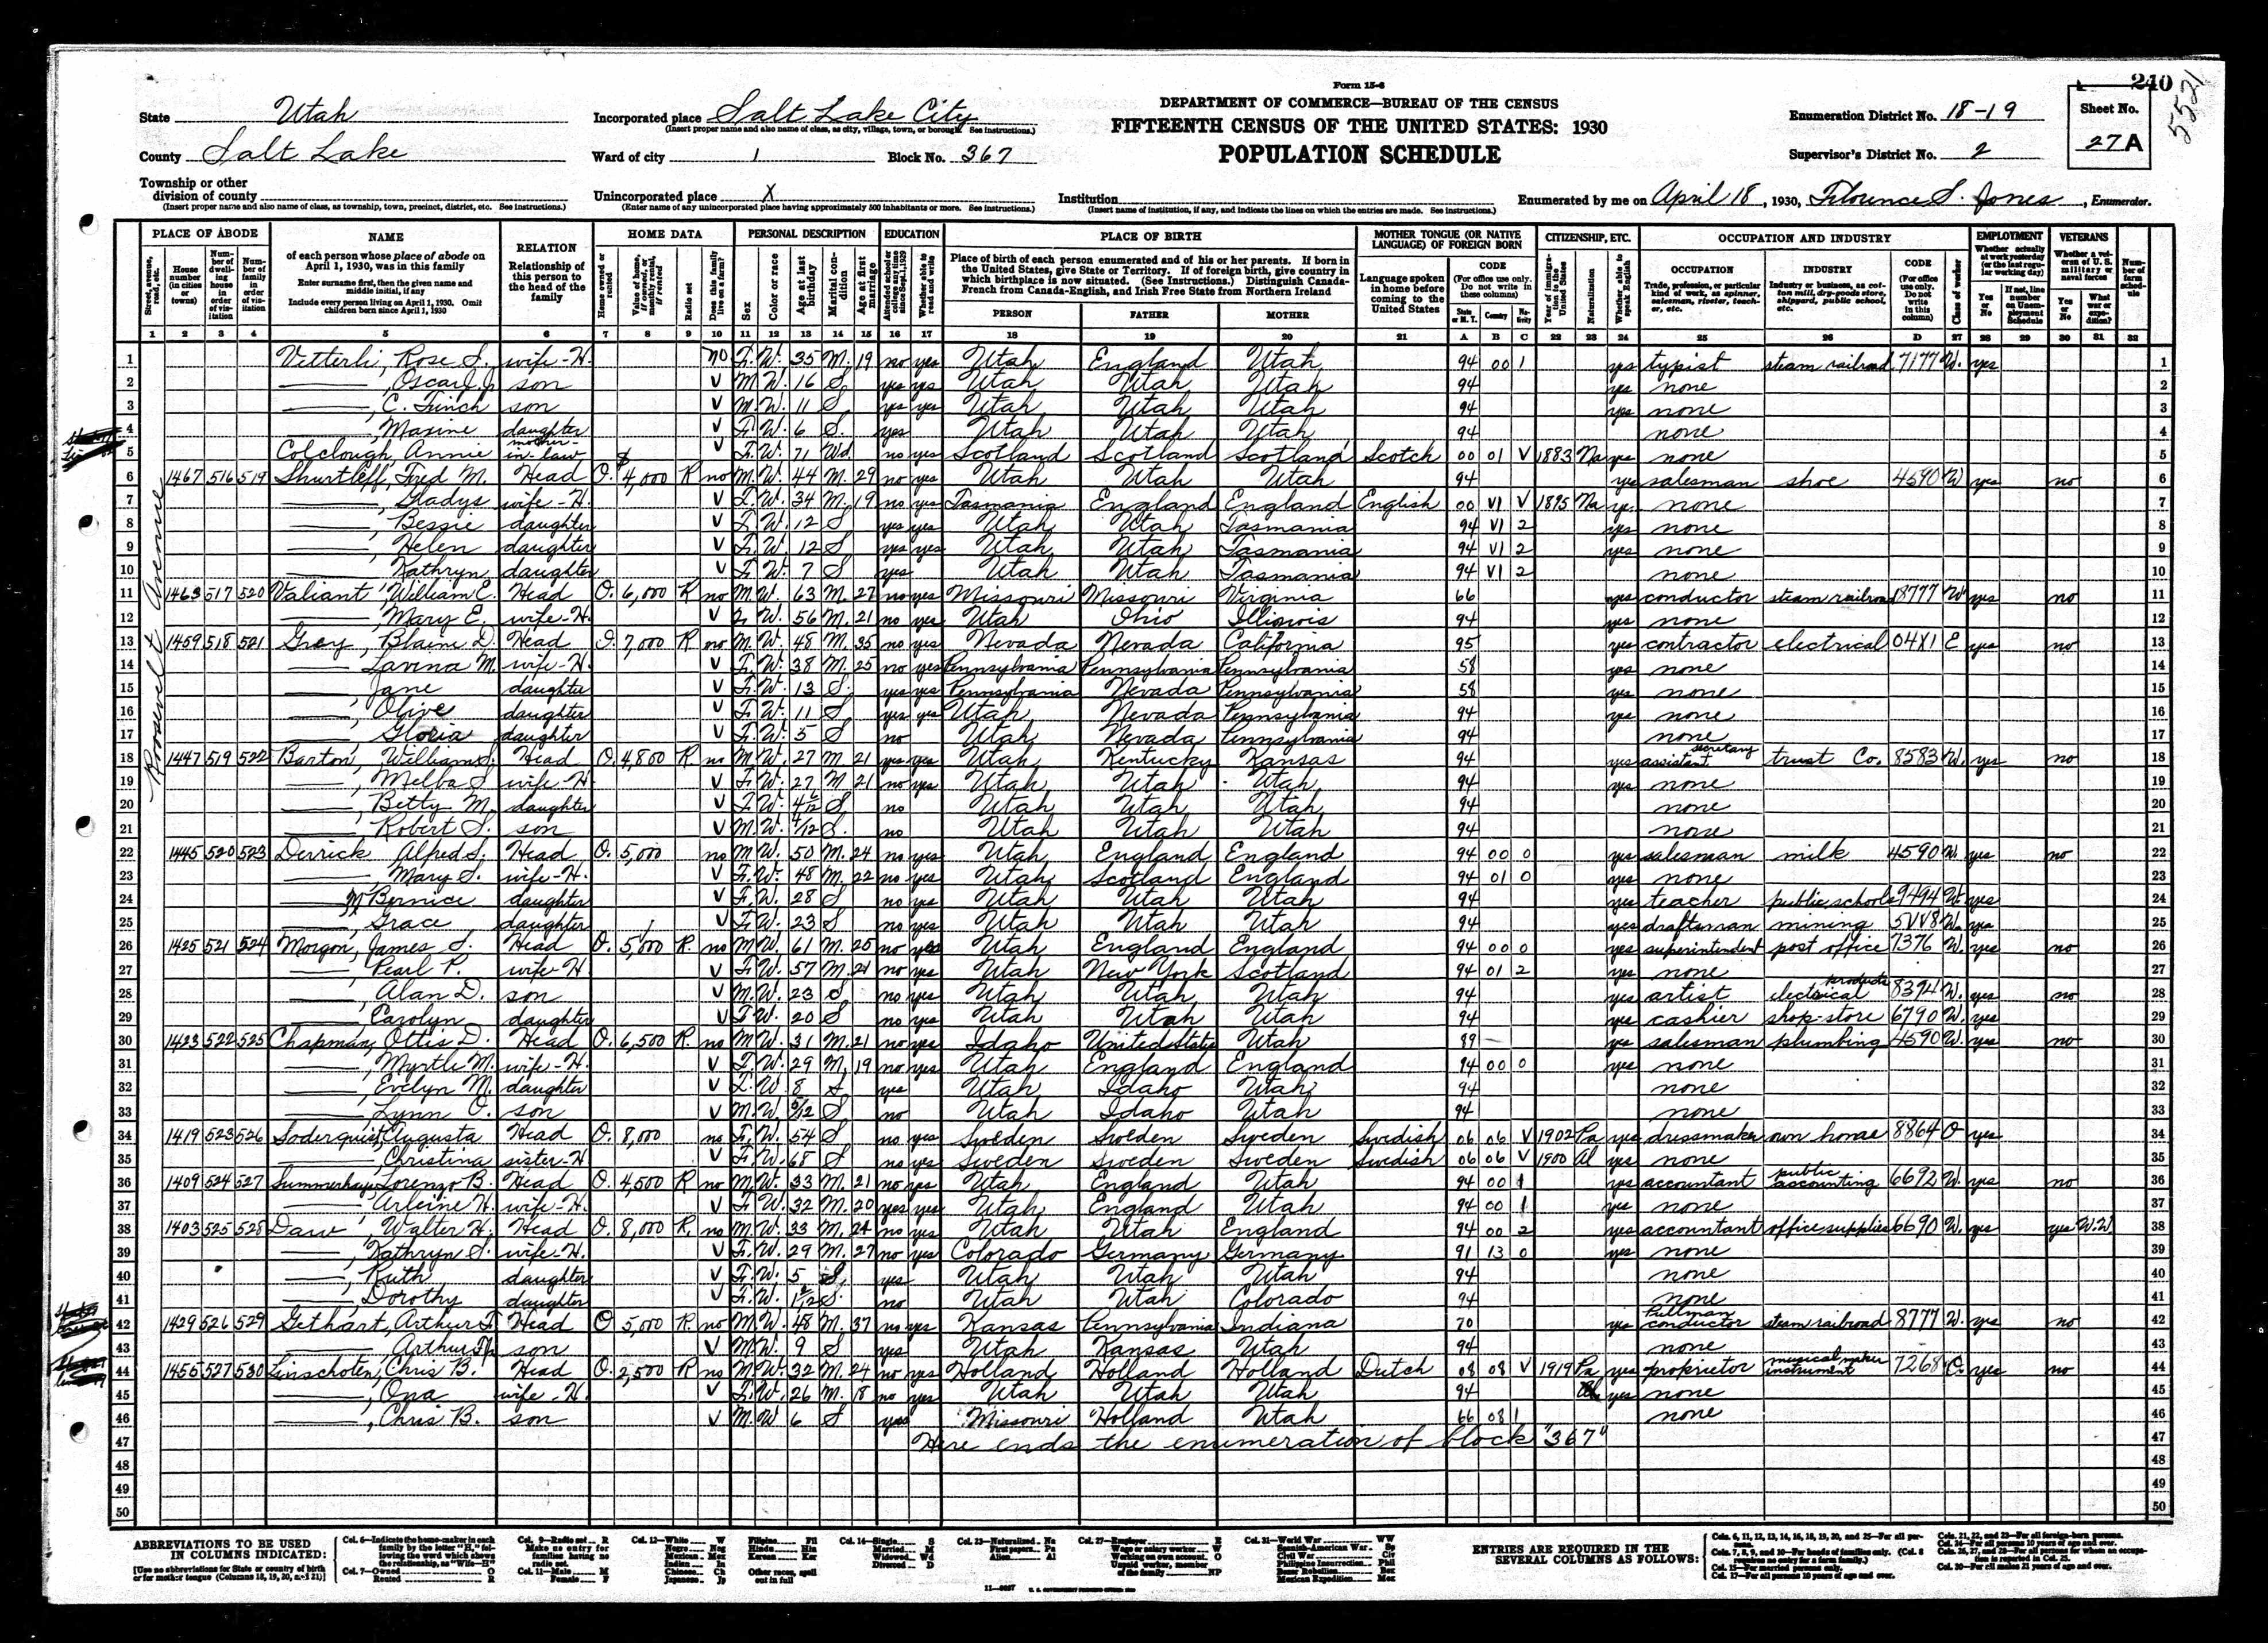 240
5521
Form 15-6
DEPARTMENT OF COMMERCE—BUREAU OF THE CENSUS
FIFTEENTH CENSUS OF THE UNITED STATES: 1930
POPULATION SCHEDULE
State Utah
County Salt Lake
Township or other division of county
(Insert proper name and also name of class, as township, town, precinct, district, etc. See instructions.)
Incorporated place Salt Lake City
(Insert proper name and also name of class, as city, village, town, or borough. See instructions.)
Ward of city 1 Block No. 367
Unincorporated place X
(Enter name of any unincorporated place having approximately 500 inhabitants or more. See instructions.)
Institution
(Insert name of institution, if any, and indicate the lines on which the entries are made. See instructions.)
Enumeration District No. 18-19
Supervisor's District No. 2
Sheet No. 27 A
Enumerated by me on April 18, 1930, Florence S. Jones, Enumerator.
PLACE OF ABODE NAME RELATION HOME DATA PERSONAL DESCRIPTION EDUCATION PLACE OF BIRTH MOTHER TONGUE (OR NATIVE LANGUAGE) OF FOREIGN BORN CITIZENSHIP, ETC. OCCUPATION AND INDUSTRY EMPLOYMENT VETERANS
Roosevelt Avenue
1 Vetterli, Rose S. wife-H. no F. W. 35 M. 19 no yes Utah England Utah 94 00 1 yes typist steam railroad 7177 W. yes 1
2 ——, Oscar J. Jr son V M W. 16 S. yes yes Utah Utah Utah 94 yes none 2
3 ——, C. Finch son V M. W. 11 S yes yes Utah Utah Utah 94 yes none 3
4 ——, Maxine daughter V F. W. 6 S. yes Utah Utah Utah 94 none 4
5 Colclough, Annie mother-in-law V F. W. 71 Wd. no yes Scotland Scotland Scotland Scotch 00 01 V 1883 Na yes none 5
6 1467 516 519 Shurtleff, Fred M. Head O. $4,000 R no M. W. 44 M. 29 no yes Utah Utah Utah 94 yes salesman shoe 4590 W yes no 6
7 ——, Gladys wife-H. V F. W. 34 M. 19 no yes Tasmania England England English 00 V1 V 1895 Na yes none 7
8 ——, Bessie daughter V F. W. 12 S yes yes Utah Utah Tasmania 94 V1 2 yes none 8
9 ——, Helen daughter V F. W. 12 S yes yes Utah Utah Tasmania 94 V1 2 yes none 9
10 ——, Kathryn daughter V F. W. 7 S yes Utah Utah Tasmania 94 V1 2 none 10
11 1463 517 520 Valiant, William E. Head O. 6,000 R no M W. 63 M. 27 no yes Missouri Missouri Virginia 66 yes conductor steam railroad 8777 W yes no 11
12 ——, Mary E. wife-H. V F. W. 56 M. 21 no yes Utah Ohio Illinois 94 yes none 12
13 1459 518 521 Gray, Blaine D. Head O. 7,000 R no M. W. 48 M. 35 no yes Nevada Nevada California 95 yes contractor electrical 04X1 E yes no 13
14 ——, Lavina M. wife-H. V F. W. 38 M. 25 no yes Pennsylvania Pennsylvania Pennsylvania 58 yes none 14
15 ——, Jane daughter V F. W. 13 S. yes yes Pennsylvania Nevada Pennsylvania 58 yes none 15
16 ——, Olive daughter V F. W. 11 S yes yes Utah Nevada Pennsylvania 94 yes none 16
17 ——, Gloria daughter V F. W. 5 S no Utah Nevada Pennsylvania 94 none 17
18 1447 519 522 Barton, William S. Head O. 4,800 R. no M W. 27 M. 21 yes yes Utah Kentucky Kansas 94 yes assistant secretary trust Co. 8583 W. yes no 18
19 ——, Melba S. wife-H V F. W. 27 M 21 no yes Utah Utah Utah 94 yes none 19
20 ——, Betty M. daughter V F. W. S no Utah Utah Utah 94 none 20
21 ——, Robert S. son V M. W. S. no Utah Utah Utah 94 none 21
22 1445 520 523 Derrick Alfred S. Head O. 5,000 no M W. 50 M. 24 no yes Utah England England 94 00 0 yes salesman milk 4590 W. yes no 22
23 ——, Mary S. wife-H. V F. W. 48 M. 22 no yes Utah Scotland England 94 01 0 yes none 23
24 —— M Bernice daughter V F. W. 28 S no yes Utah Utah Utah 94 yes teacher public schools 9494 W. yes 24
25 ——, Grace daughter V F. W. 23 S no yes Utah Utah Utah 94 yes draftsman mining 5VV8 W. yes 25
26 1425 521 524 Morgan, James S. Head O. 5,000 R. no M W. 61 M. 25 no yes Utah England England 94 00 0 yes superintendent post office 7376 W. yes no 26
27 ——, Pearl P. wife-H V F. W. 57 M. 21 no yes Utah New York Scotland 94 01 2 yes none 27
28 ——, Alan D. son V M. W. 23 S no yes Utah Utah Utah 94 yes artist electrical products 8394 W. yes no 28
29 ——, Carolyn daughter V F. W. 20 S no yes Utah Utah Utah 94 yes cashier shop-store 6790 W. yes 29
30 1423 522 525 Chapman, Ottis D. Head O. 6,500 R. no M W. 31 M. 21 no yes Idaho United States Utah 89 yes salesman plumbing 4590 W. yes no 30
31 ——, Myrtle M. wife-H. V F. W. 29 M. 19 no yes Utah England England 94 00 0 yes none 31
32 ——, Evelyn M. daughter V F. W. 8 S yes Utah Idaho Utah 94 none 32
33 ——, Lynn O. son V M. W. S no Utah Idaho Utah 94 none 33
34 1419 523 526 Soderquist, Augusta Head O. 8,000 no F. W. 54 S no yes Sweden Sweden Sweden Swedish 06 06 V 1902 Pa yes dressmaker own home 8864 O yes 34
35 ——, Christina sister-H V F. W. 68 S no yes Sweden Sweden Sweden Swedish 06 06 V 1900 Al yes none 35
36 1409 524 527 Summerhays, Lorenzo B. Head O. 4,500 R no M. W. 33 M. 21 no yes Utah England Utah 94 00 1 yes accountant public accounting 6692 W. yes no 36
37 ——, Arleine H. wife-H. V F. W. 32 M. 20 yes yes Utah England Utah 94 00 1 yes none 37
38 1403 525 528 Daw, Walter H. Head O. 8,000 R. no M. W. 33 M. 24 no yes Utah Utah England 94 00 2 yes accountant office supplies 6690 W. yes yes W.W. 38
39 ——, Kathryn S. wife-H. V F. W. 29 M. 27 no yes Colorado Germany Germany 91 13 0 yes none 39
40 ——, Ruth daughter V F. W. 5 S. yes Utah Utah Utah 94 none 40
41 ——, Dorothy daughter V F. W. S. no Utah Utah Colorado 94 none 41
42 1429 526 529 Gethart, Arthur F. Head O 5,000 R. no M W. 48 M. 37 no yes Kansas Pennsylvania Indiana 70 yes Pullman conductor steam railroad 8777 W. yes no 42
43 ——, Arthur F. Jr son V M W. 9 S yes Utah Kansas Utah 94 none 43
44 1455 527 530 Linschoten, Chris B. Head O. 2,500 R no M W. 32 M. 24 no yes Holland Holland Holland Dutch 08 08 V 1919 Pa yes proprietor musical instrument maker 7268 O. yes no 44
45 ——, Ona wife-H. V F. W. 26 M. 18 no yes Utah Utah Utah 94 yes none 45
46 ——, Chris B. son V M. W 6 S yes Missouri Holland Utah 66 08 1 none 46
47 Here ends the enumeration of block "367" 47
48 48
49 49
50 50
ABBREVIATIONS TO BE USED IN COLUMNS INDICATED:
[Use no abbreviations for State or country of birth or for mother tongue (Columns 18, 19, 20, and 21)]
ENTRIES ARE REQUIRED IN THE SEVERAL COLUMNS AS FOLLOWS: